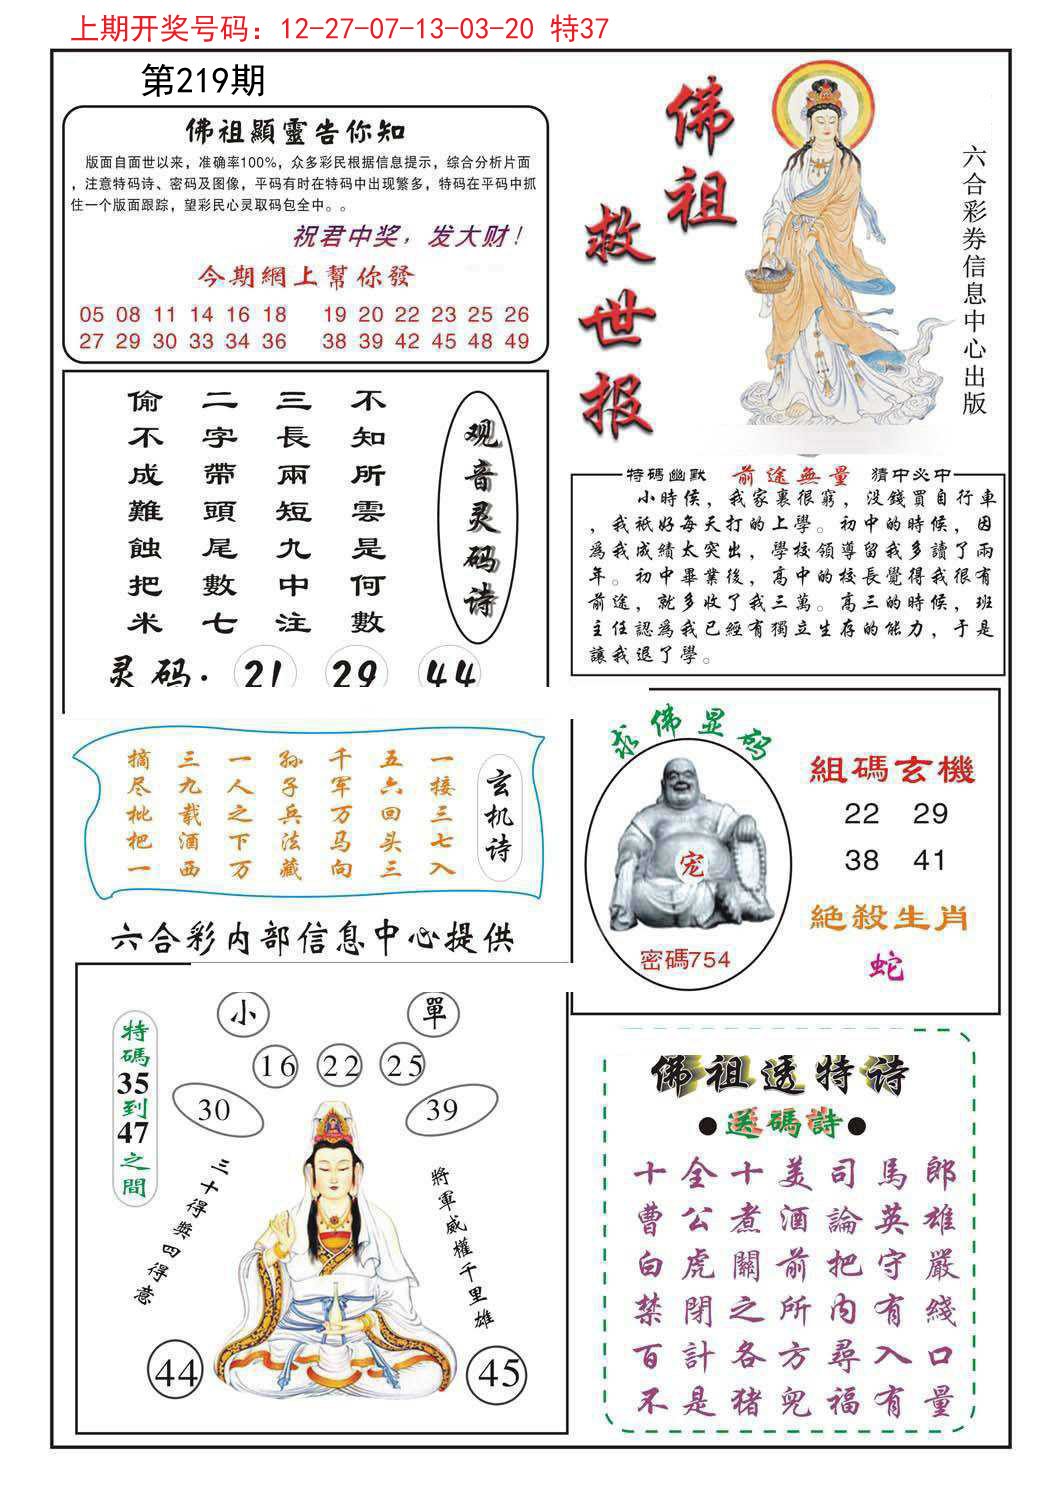 上期开奖号码：12-27-07-13-03-20 特37
第219期
佛祖顯靈告你知
版面自面世以来，准确率100%，众多彩民根据信息提示，综合分析片面
，注意特码诗、密码及图像，平码有时在特码中出现繁多，特码在平码中抓
住一个版面跟踪，望彩民心灵取码包全中。。
祝君中奖，发大财！
今期網上幫你發
05 08 11 14 16 18 19 20 22 23 25 26
27 29 30 33 34 36 38 39 42 45 48 49
佛祖
救世报
六合彩券信息中心出版
观音灵码诗
不知所雲是何數
三長兩短九中注
二字帶頭尾數七
偷不成難蝕把米
灵码. 21 29 44
特碼幽默 前途無量 猜中必中
小時侯，我家裏很窮，没錢買自行車
，我祇好每天打的上學。初中的時候，因
爲我成績太突出，學校領導留我多讀了兩
年。初中畢業後，高中的校長覺得我很有
前途，就多收了我三萬。高三的時候，班
主任認爲我已經有獨立生存的能力，于是
讓我退了學。
玄机诗
一接三七入
五六回头三
千军万马向
孙子兵法藏
一人之下万
三九载酒西
摘尽枇杷一
六合彩内部信息中心提供
求佛显码
宠
密碼754
組碼玄機
22 29
38 41
絶殺生肖
蛇
小 單
16 22 25
30 39
特碼35到47之間
三十得獎四得意
將軍威權千里雄
44 45
佛祖透特诗
●送碼詩●
十全十美司馬郎
曹公煮酒論英雄
白虎關前把守嚴
禁閉之所内有綫
百計各方尋入口
不是猪兜福有量